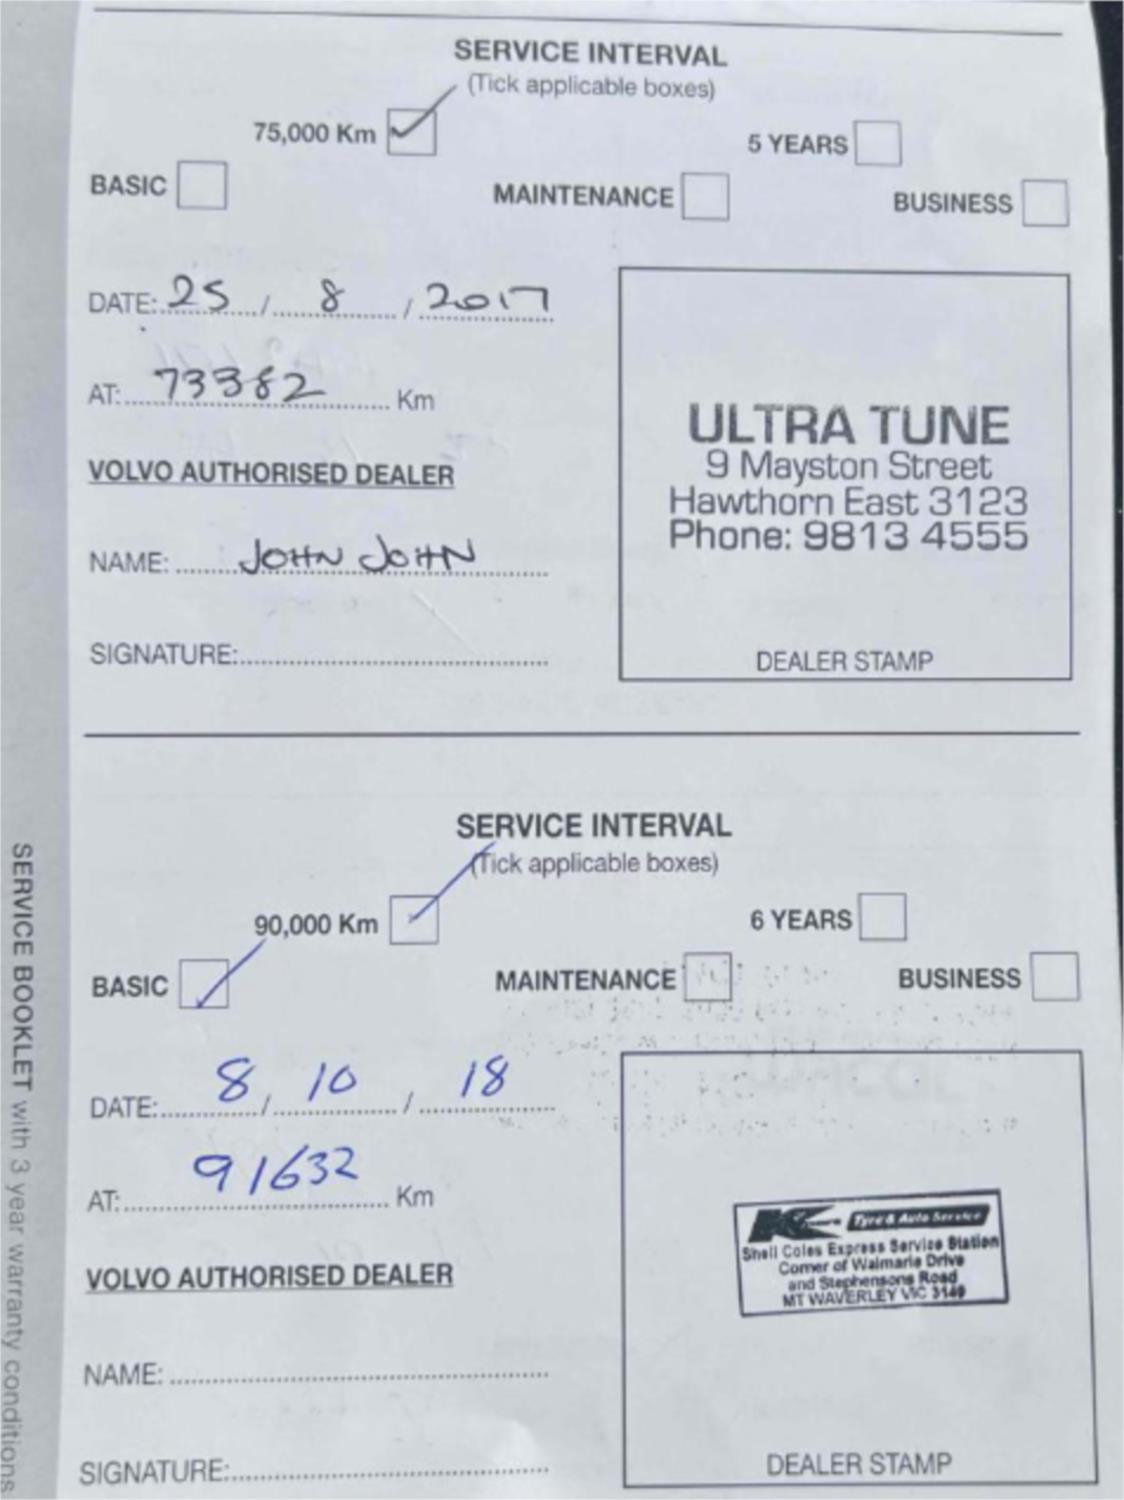 SERVICE INTERVAL
(Tick applicable boxes)
75,000 Km
5 YEARS
BASIC
MAINTENANCE
BUSINESS
DATE: 25 / 8 / 2017
AT: 73382 Km
VOLVO AUTHORISED DEALER
NAME: JOHN JOHN
SIGNATURE:
ULTRA TUNE
9 Mayston Street
Hawthorn East 3123
Phone: 9813 4555
DEALER STAMP
SERVICE INTERVAL
(Tick applicable boxes)
90,000 Km
6 YEARS
BASIC
MAINTENANCE
BUSINESS
DATE: 8 / 10 / 18
AT: 91632 Km
VOLVO AUTHORISED DEALER
NAME:
SIGNATURE:
Tyre & Auto Service
Shell Coles Express Service Station
Corner of Walmarie Drive
and Stephensons Road
MT WAVERLEY VIC 3149
DEALER STAMP
SERVICE BOOKLET with 3 year warranty conditions